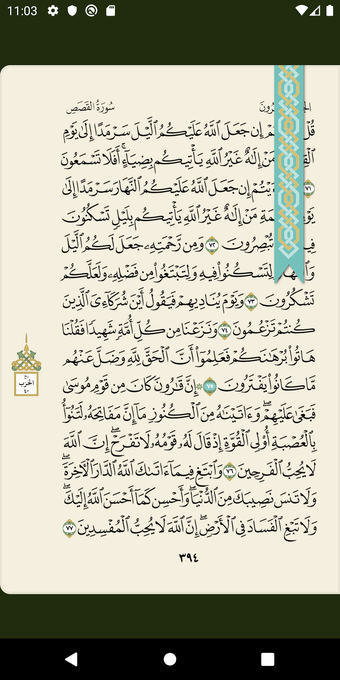 11:03
الجـ ـرُونَ سُورَةُ القَصَصِ
قُلْ ـمْ إِن جَعَلَ ٱللَّهُ عَلَيْكُمُ ٱلَّيْلَ سَرْمَدًا إِلَىٰ يَوْمِ
مَنْ إِلَٰهٌ غَيْرُ ٱللَّهِ يَأْتِيكُم بِضِيَآءٍ ۖ أَفَلَا تَسْمَعُونَ
٧١ ـَٔيْتُمْ إِن جَعَلَ ٱللَّهُ عَلَيْكُمُ ٱلنَّهَارَ سَرْمَدًا إِلَىٰ
يَوْ ـمَةِ مَنْ إِلَٰهٌ غَيْرُ ٱللَّهِ يَأْتِيكُم بِلَيْلٍ تَسْكُنُونَ
فِيـ تُبْصِرُونَ ٧٢ وَمِن رَّحْمَتِهِۦ جَعَلَ لَكُمُ ٱلَّيْلَ
وَٱلنَّهَارَ لِتَسْكُنُوا۟ فِيهِ وَلِتَبْتَغُوا۟ مِن فَضْلِهِۦ وَلَعَلَّكُمْ
تَشْكُرُونَ ٧٣ وَيَوْمَ يُنَادِيهِمْ فَيَقُولُ أَيْنَ شُرَكَآءِىَ ٱلَّذِينَ
كُنتُمْ تَزْعُمُونَ ٧٤ وَنَزَعْنَا مِن كُلِّ أُمَّةٍ شَهِيدًا فَقُلْنَا
هَاتُوا۟ بُرْهَٰنَكُمْ فَعَلِمُوٓا۟ أَنَّ ٱلْحَقَّ لِلَّهِ وَضَلَّ عَنْهُم
مَّا كَانُوا۟ يَفْتَرُونَ ٧٥ ۞ إِنَّ قَٰرُونَ كَانَ مِن قَوْمِ مُوسَىٰ
فَبَغَىٰ عَلَيْهِمْ ۖ وَءَاتَيْنَٰهُ مِنَ ٱلْكُنُوزِ مَآ إِنَّ مَفَاتِحَهُۥ لَتَنُوٓأُ
بِٱلْعُصْبَةِ أُو۟لِى ٱلْقُوَّةِ إِذْ قَالَ لَهُۥ قَوْمُهُۥ لَا تَفْرَحْ ۖ إِنَّ ٱللَّهَ
لَا يُحِبُّ ٱلْفَرِحِينَ ٧٦ وَٱبْتَغِ فِيمَآ ءَاتَىٰكَ ٱللَّهُ ٱلدَّارَ ٱلْءَاخِرَةَ ۖ
وَلَا تَنسَ نَصِيبَكَ مِنَ ٱلدُّنْيَا ۖ وَأَحْسِن كَمَآ أَحْسَنَ ٱللَّهُ إِلَيْكَ ۖ
وَلَا تَبْغِ ٱلْفَسَادَ فِى ٱلْأَرْضِ ۖ إِنَّ ٱللَّهَ لَا يُحِبُّ ٱلْمُفْسِدِينَ ٧٧
الحزب
٤٠
٣٩٤